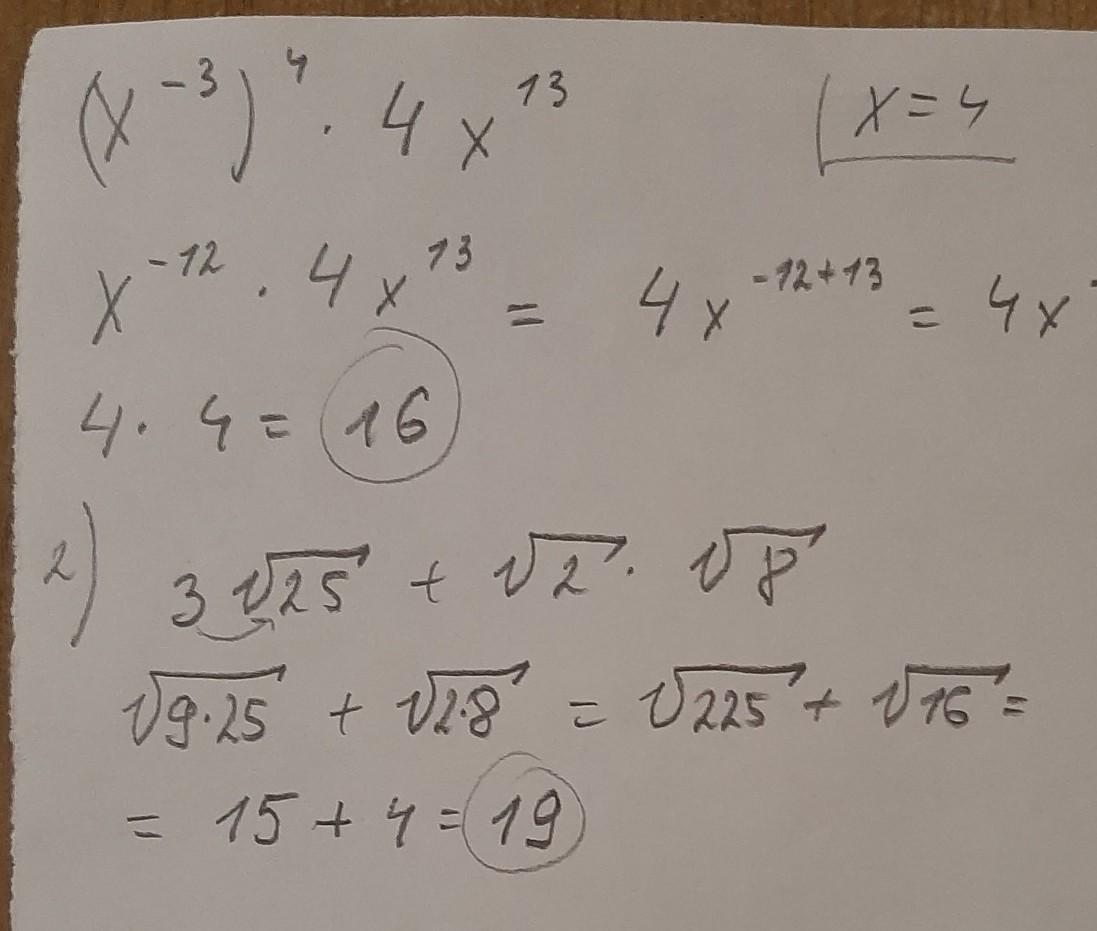 (x⁻³)⁴ · 4x¹³ | x = 4
x⁻¹² · 4x¹³ = 4x⁻¹²⁺¹³ = 4x
4 · 4 = 16
2) 3√25 + √2 · √8
√9·25 + √2·8 = √225 + √16 =
= 15 + 4 = 19